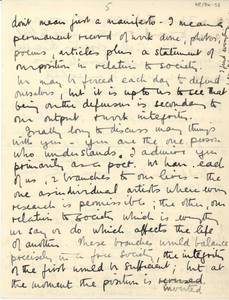 5
don't mean just a manifesto - I mean a
permanent record of work done, photos,
poems, articles plus a statement of
our position in relation to society.
We may be forced each day to defend
ourselves, but it is up to us to see that
being on the defensive is secondary to
our output & work integrity.
I really long to discuss many things
with you - You are the one person
who understands, I admire you
primarily as a poet. We have, each
of us, 2 branches to our lives - the
one as individual artists where every
research is permissible; the other, our
relation to society which is everything
we say or do which affects the life
of another. These branches would balance
precisely in a free society, the integrity
of the first would be sufficient; but at
the moment the position is reversed